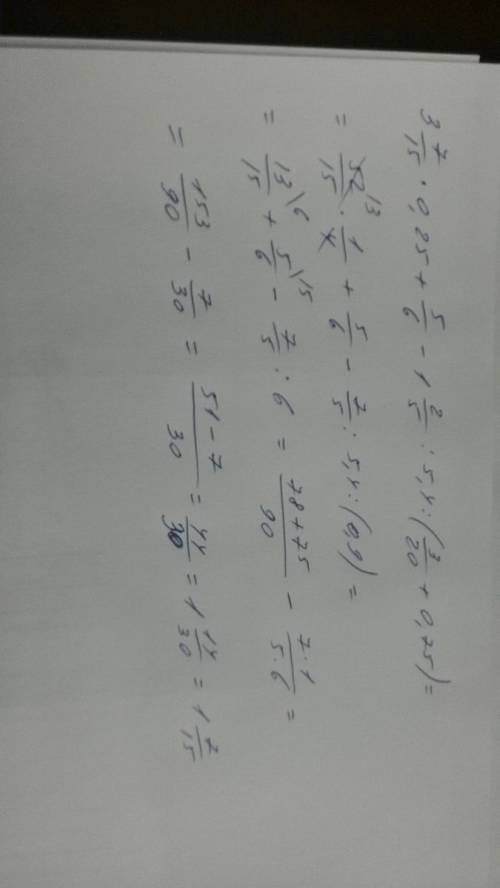 3 7/15 · 0,25 + 5/6 - 1 2/5 : 5,4 : (3/20 + 0,75) =
= 52/15 13 · 1/4 + 5/6 - 7/5 : 5,4 : (0,9) =
= 13/15 \6 + 5/6 \15 - 7/5 : 6 = 78+75/90 - 7·1/5·6 =
= 153/90 - 7/30 = 51-7/30 = 44/30 = 1 14/30 = 1 7/15